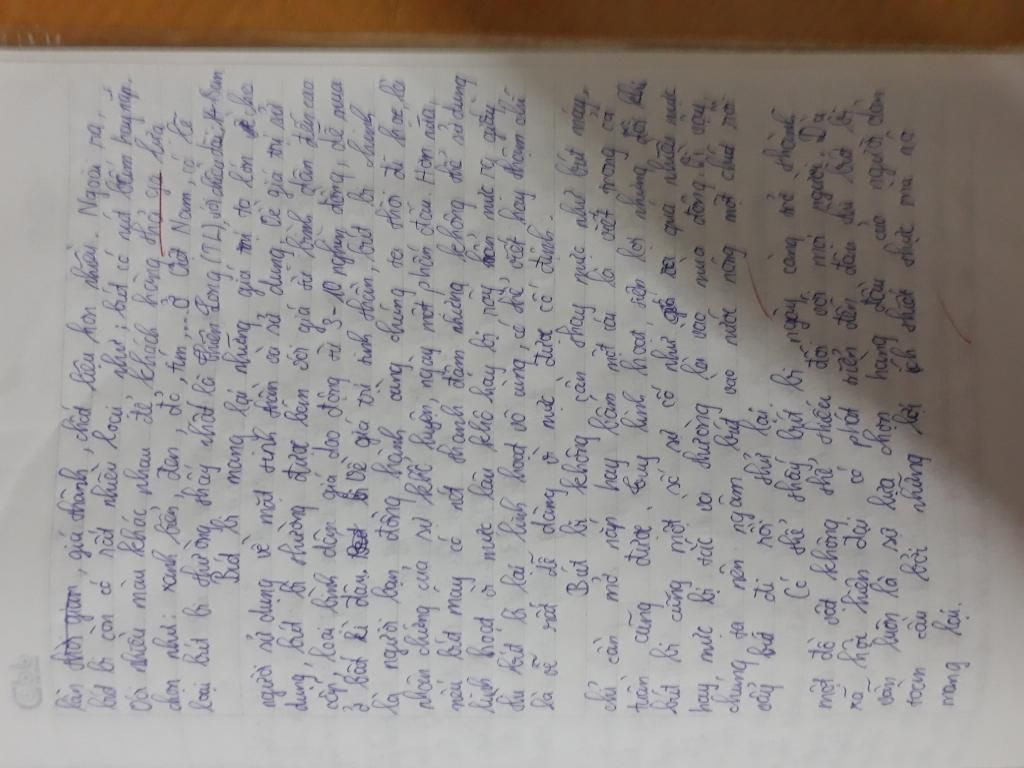 lần thời gian, giá thành, chất liệu hơn nhiều. Ngoài ra,
bút bi còn có rất nhiều loại như: bút có nút bấm hay nắp.
Với nhiều màu khác nhau để khách hàng thỏa lựa
chọn như: xanh biển, đen, đỏ, tím,... Ở Việt Nam, có lẽ
loại bút bi thường thấy nhất là Thiên Long (TL)
Bút bi mang lại những giá trị to lớn cho
người sử dụng về mặt tinh thần và sử dụng. Về giá trị sử
dụng, bút bi thường được bán với giá rất bình dân đến cao
cấp, loại bình dân giá dao động từ 3-10 nghìn đồng, dễ mua
ở bất kì đâu. Về giá trị tinh thần, bút bi chính
là người bạn đồng hành cùng chúng ta thời đi học, là
nhân chứng của sự khổ luyện, ngày một phấn đấu. Hơn nữa,
nếu bút máy có nét thanh đậm nhưng không thể sử dụng
linh hoạt vì mực lâu khô hay bị rây mực ra giấy
thì bút bi lại linh hoạt vô cùng, có thể viết hay thậm chí
là vẽ rất dễ dàng vì mực được cố định.
Bút bi không cần thay mực như bút máy,
chỉ cần mở nắp hay bấm một cái là viết trong cả
tuần cũng được. Tuy linh hoạt tiện lợi nhưng đôi khi
bút bi cũng một số sẽ có như quá nhiều mực
hay mực bị tắc và thường lại vào mùa đông. Vì vậy,
chúng ta nên ngâm bút vào nước nóng một chút rồi
vẩy bút đi rồi thử lại.
Có thể thấy bút bi ngày càng trở thành
một đồ vật không thể thiếu đối với mọi người. Dù
xã hội hiện đại có phát triển đến đâu thì bút bi
vẫn luôn là sự lựa chọn hàng đầu của người dân
toàn cầu bởi những lợi ích thiết thực mà nó
mang lại.